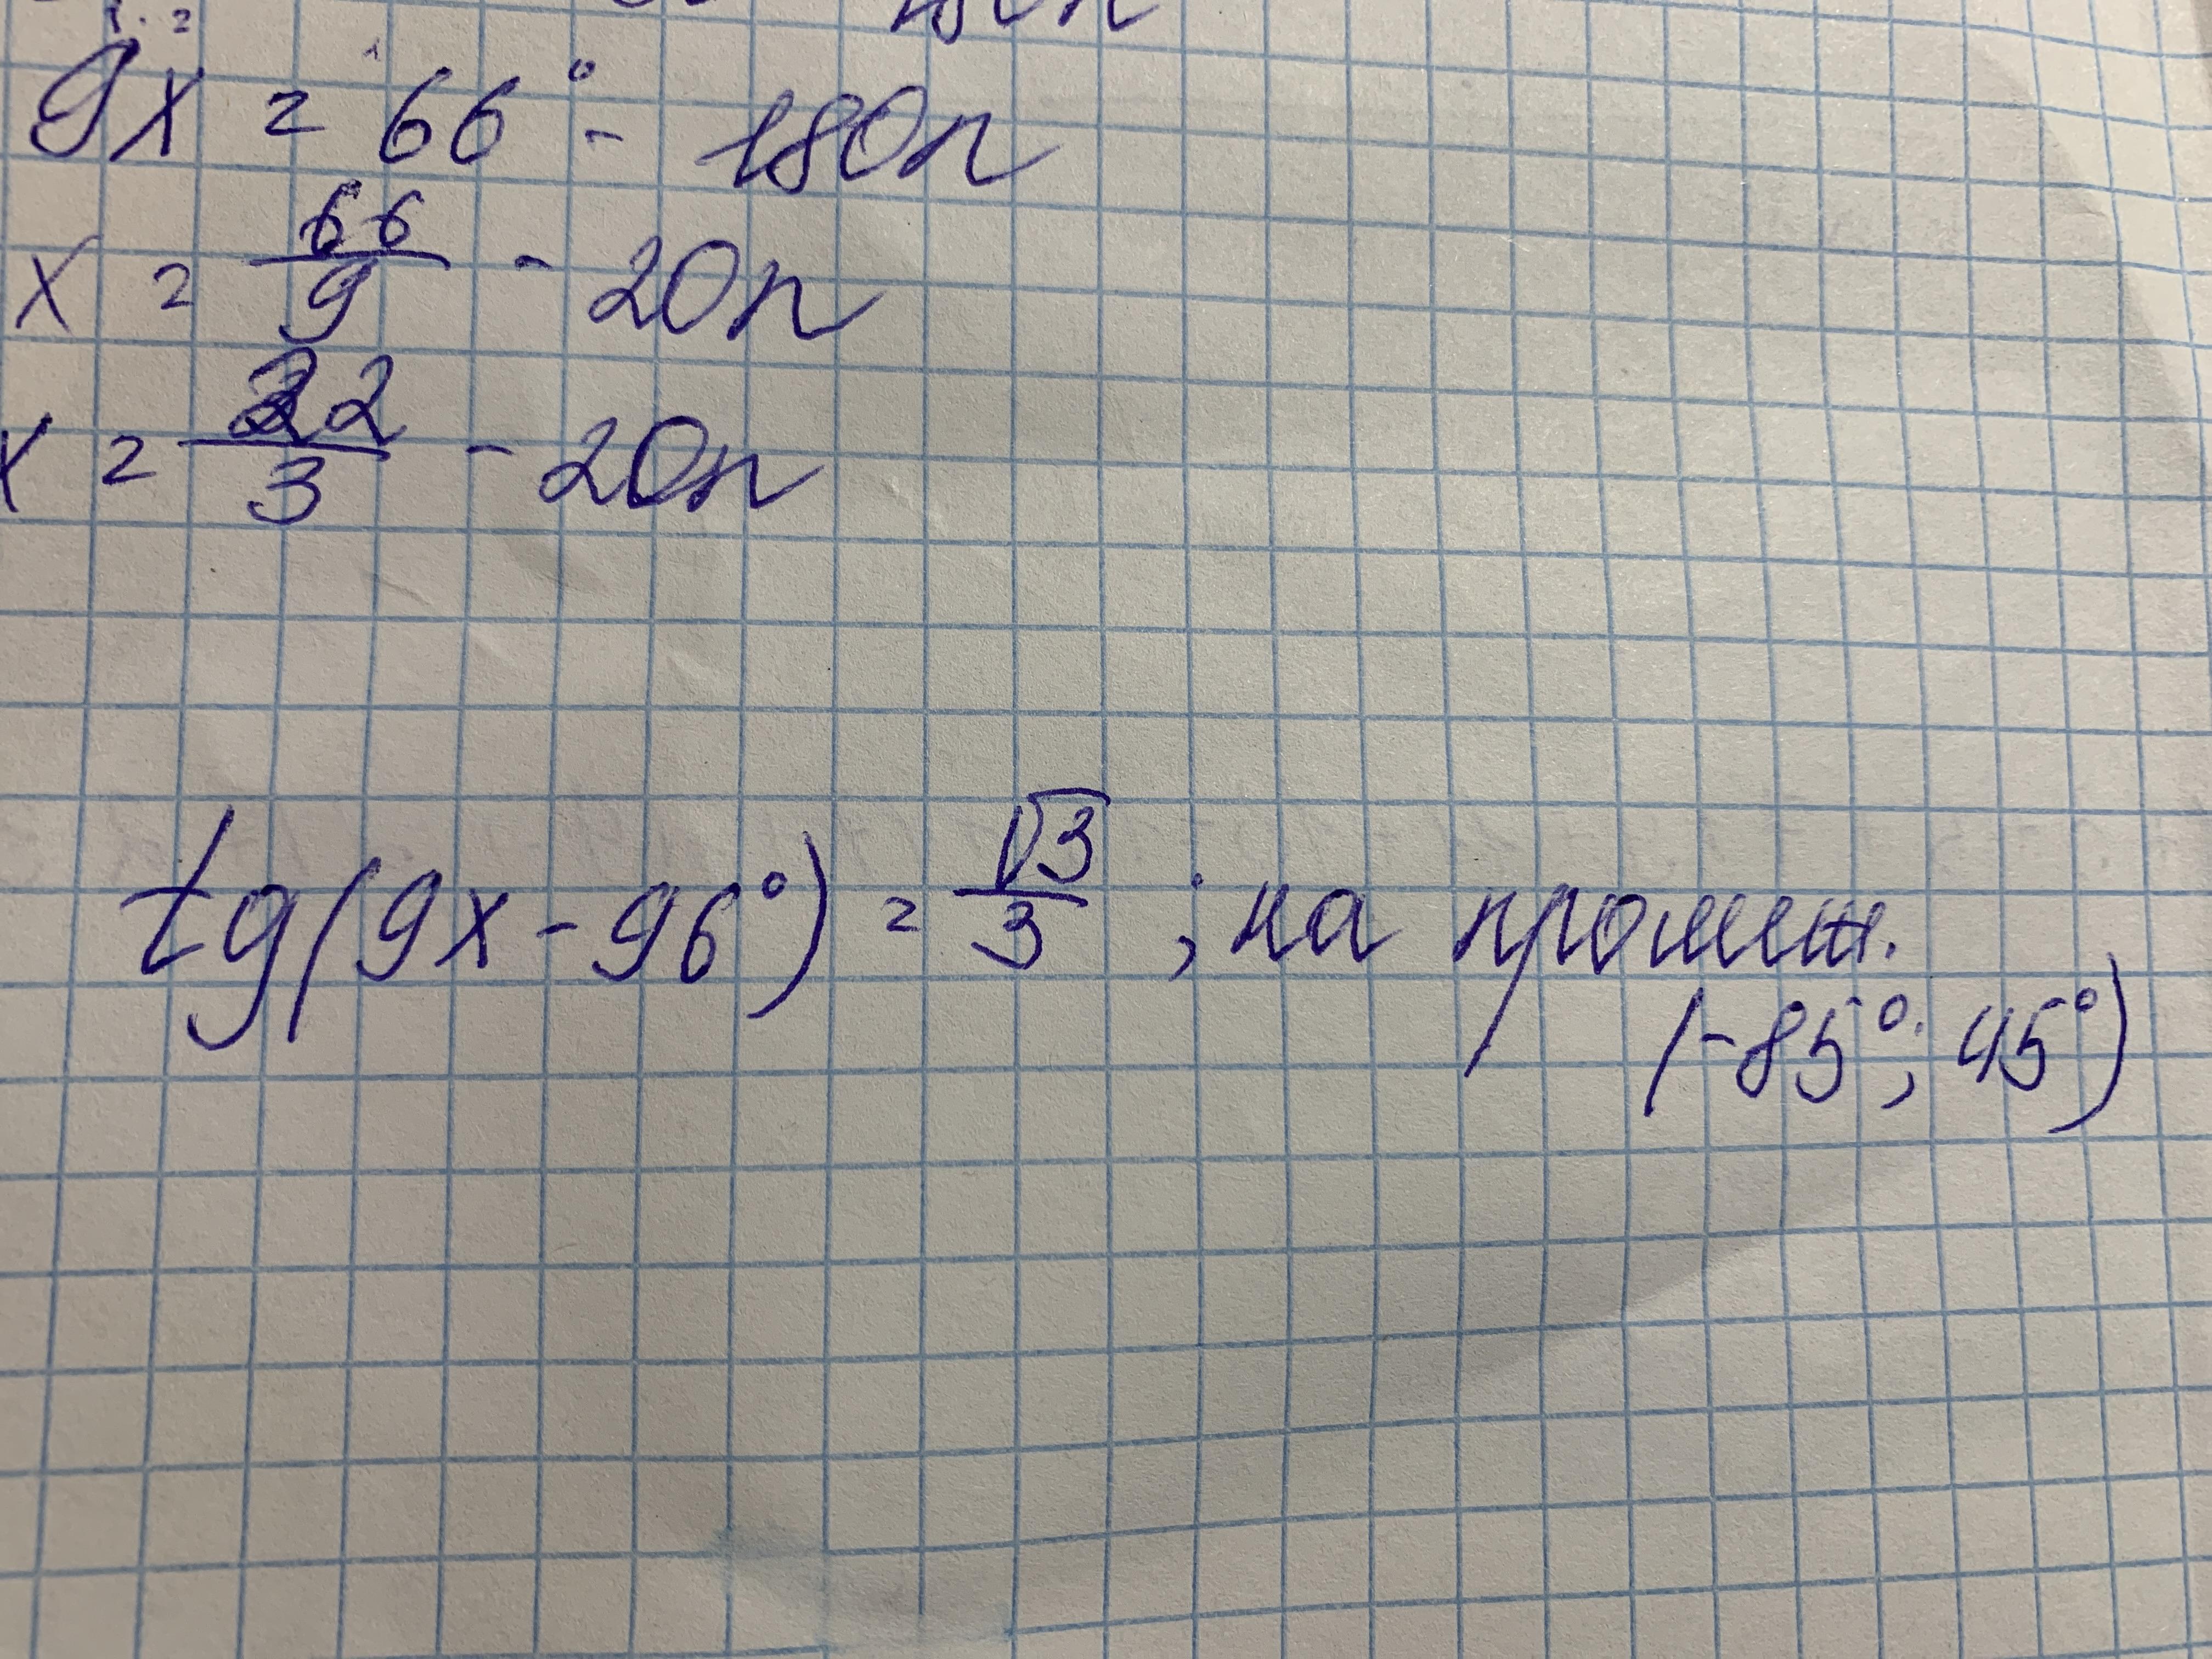 9x = 66° - 180n
x = 66/9 - 20n
x = 22/3 - 20n
tg(9x - 96°) = √3/3 ; на промеж.
(-85°; 45°)